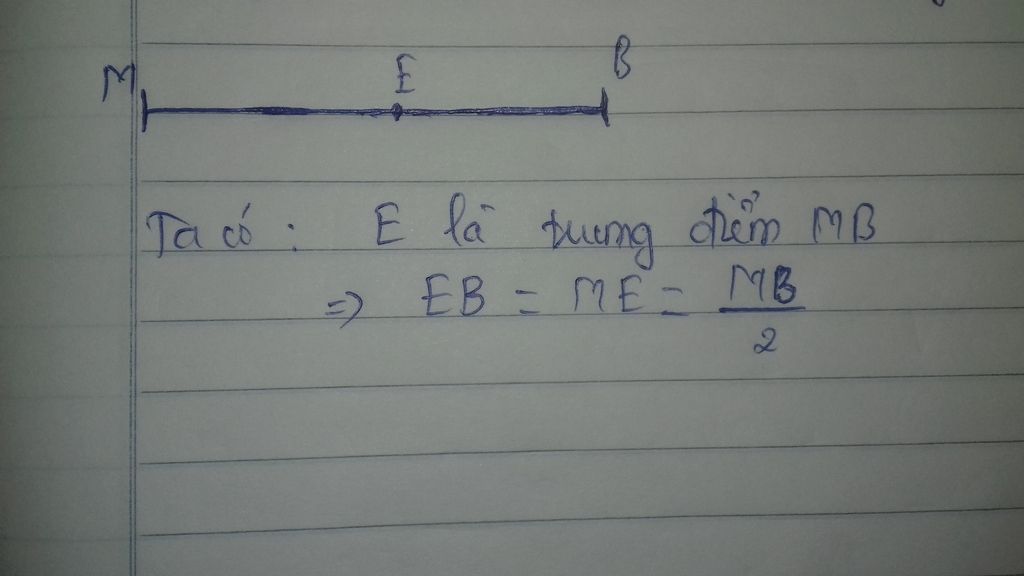 M E B
Ta có : E là trung điểm MB
=> EB = ME = MB/2